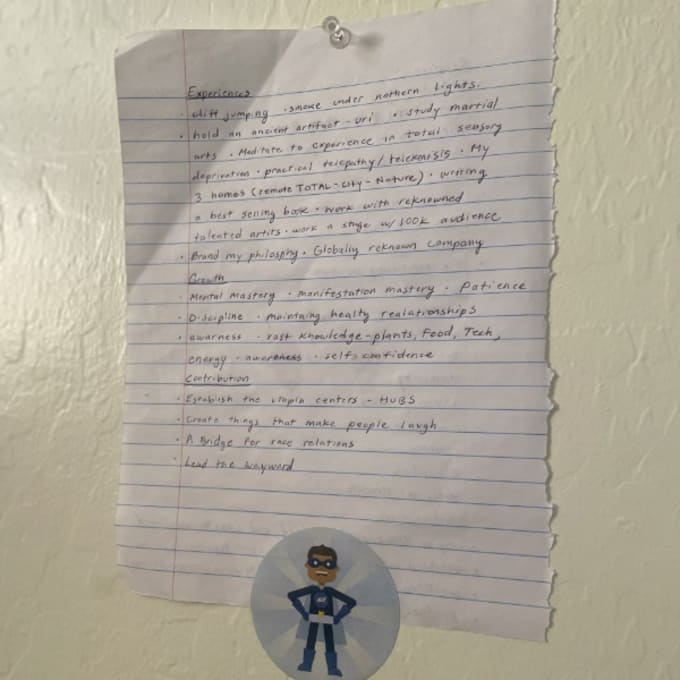 Experiences
· cliff jumping · smoke under nothern lights.
· hold an ancient artifact - uri · study martial
arts · Meditate to experience in total sensory
deprivation · practical telepathy/telekenisis · My
3 homes (remote TOTAL - City - Nature) · writing
a best selling book · work with reknowned
talented artits · work a stage w/ 100k audience
· Brand my philosphy · Globally reknown company
Growth
· Mental Mastery · manifestation mastery · Patience
· Discipline · maintaing healty realationships
· awarness · vast knowledge - plants, Food, Tech,
energy · awareness · self confidence
Contribution
· Establish the utopia centers - HUBS
· Create things that make people laugh
· A Bridge for race relations
· Lead the wayward